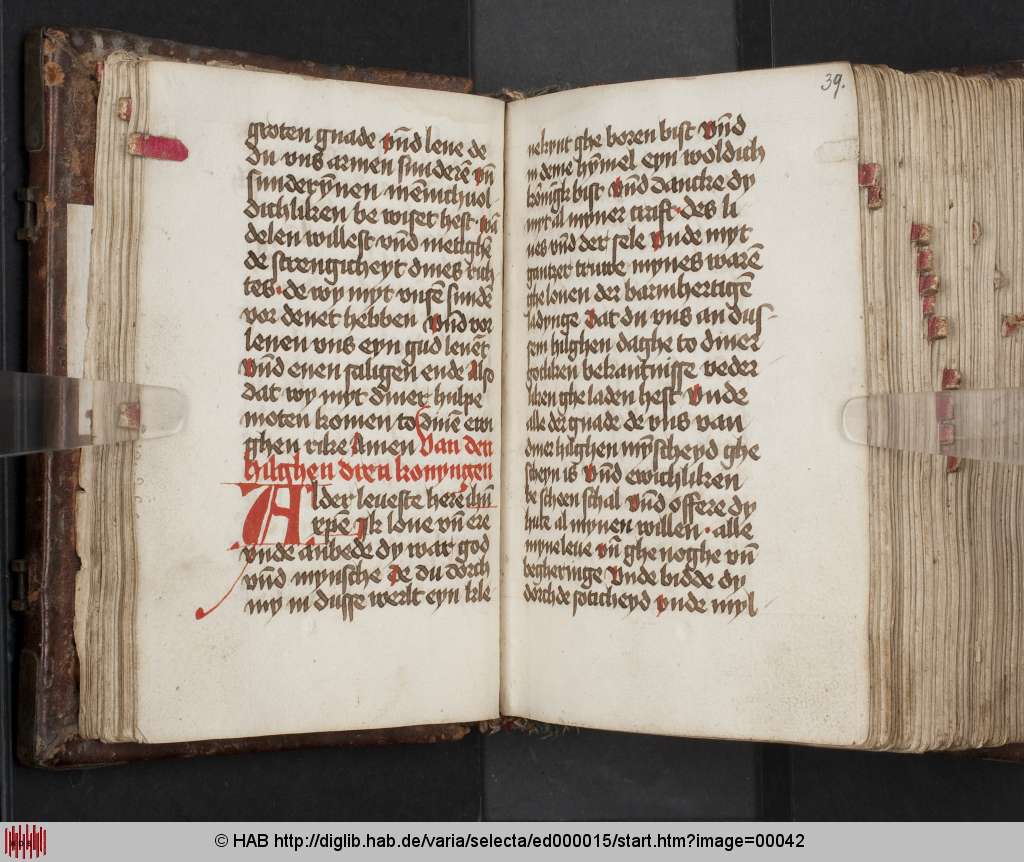 groten gnade vn̄d leue de
du vns armen sunderē vn̄
sunderȳnen mēnichuol
dichliken be wiset hest · wā
delen willest vn̄d metighē
de strengicheyt dines rich
tes · de wy myt vnsē sundē
vor denet hebben vn̄d vor
lenen vns eyn gud leuēt
vn̄d enen saligen ende Also
dat wy myt diner hulpe
moten komen to dinē ewi
ghen rike Amen Van den
hilghen dren konyngen
Alder leueste here ih̄u
xp̄e Jk loue vn̄ ere
vnde anbede dy war god
vn̄d mynsche De du dorch
my in dusse werlt eyn kle
39.
nekynt ghe boren bist vn̄d
in deme hȳmel eyn woldich
konīgk bist vn̄d dancke dy
myt al myner craft · des li
ues vn̄d der sele vnde myt
gantzer truwe mynes warē
ghe louen der barmhertigē
ladynge dat du vns an dus
sem hilghen daghe to diner
gotliken bekantnisse veder
liken ghe laden hest vnde
alle der gnade de vns van
diner hilghen mȳscheyd ghe
scheyn is vn̄d ewichliken
be scheen schal vn̄d offere dy
hute al mynen willen · alle
myne leue vn̄ ghe noghe vn̄
begheringe vnde bidde dy
dorch de soticheyd vnde myl
© HAB http://diglib.hab.de/varia/selecta/ed000015/start.htm?image=00042